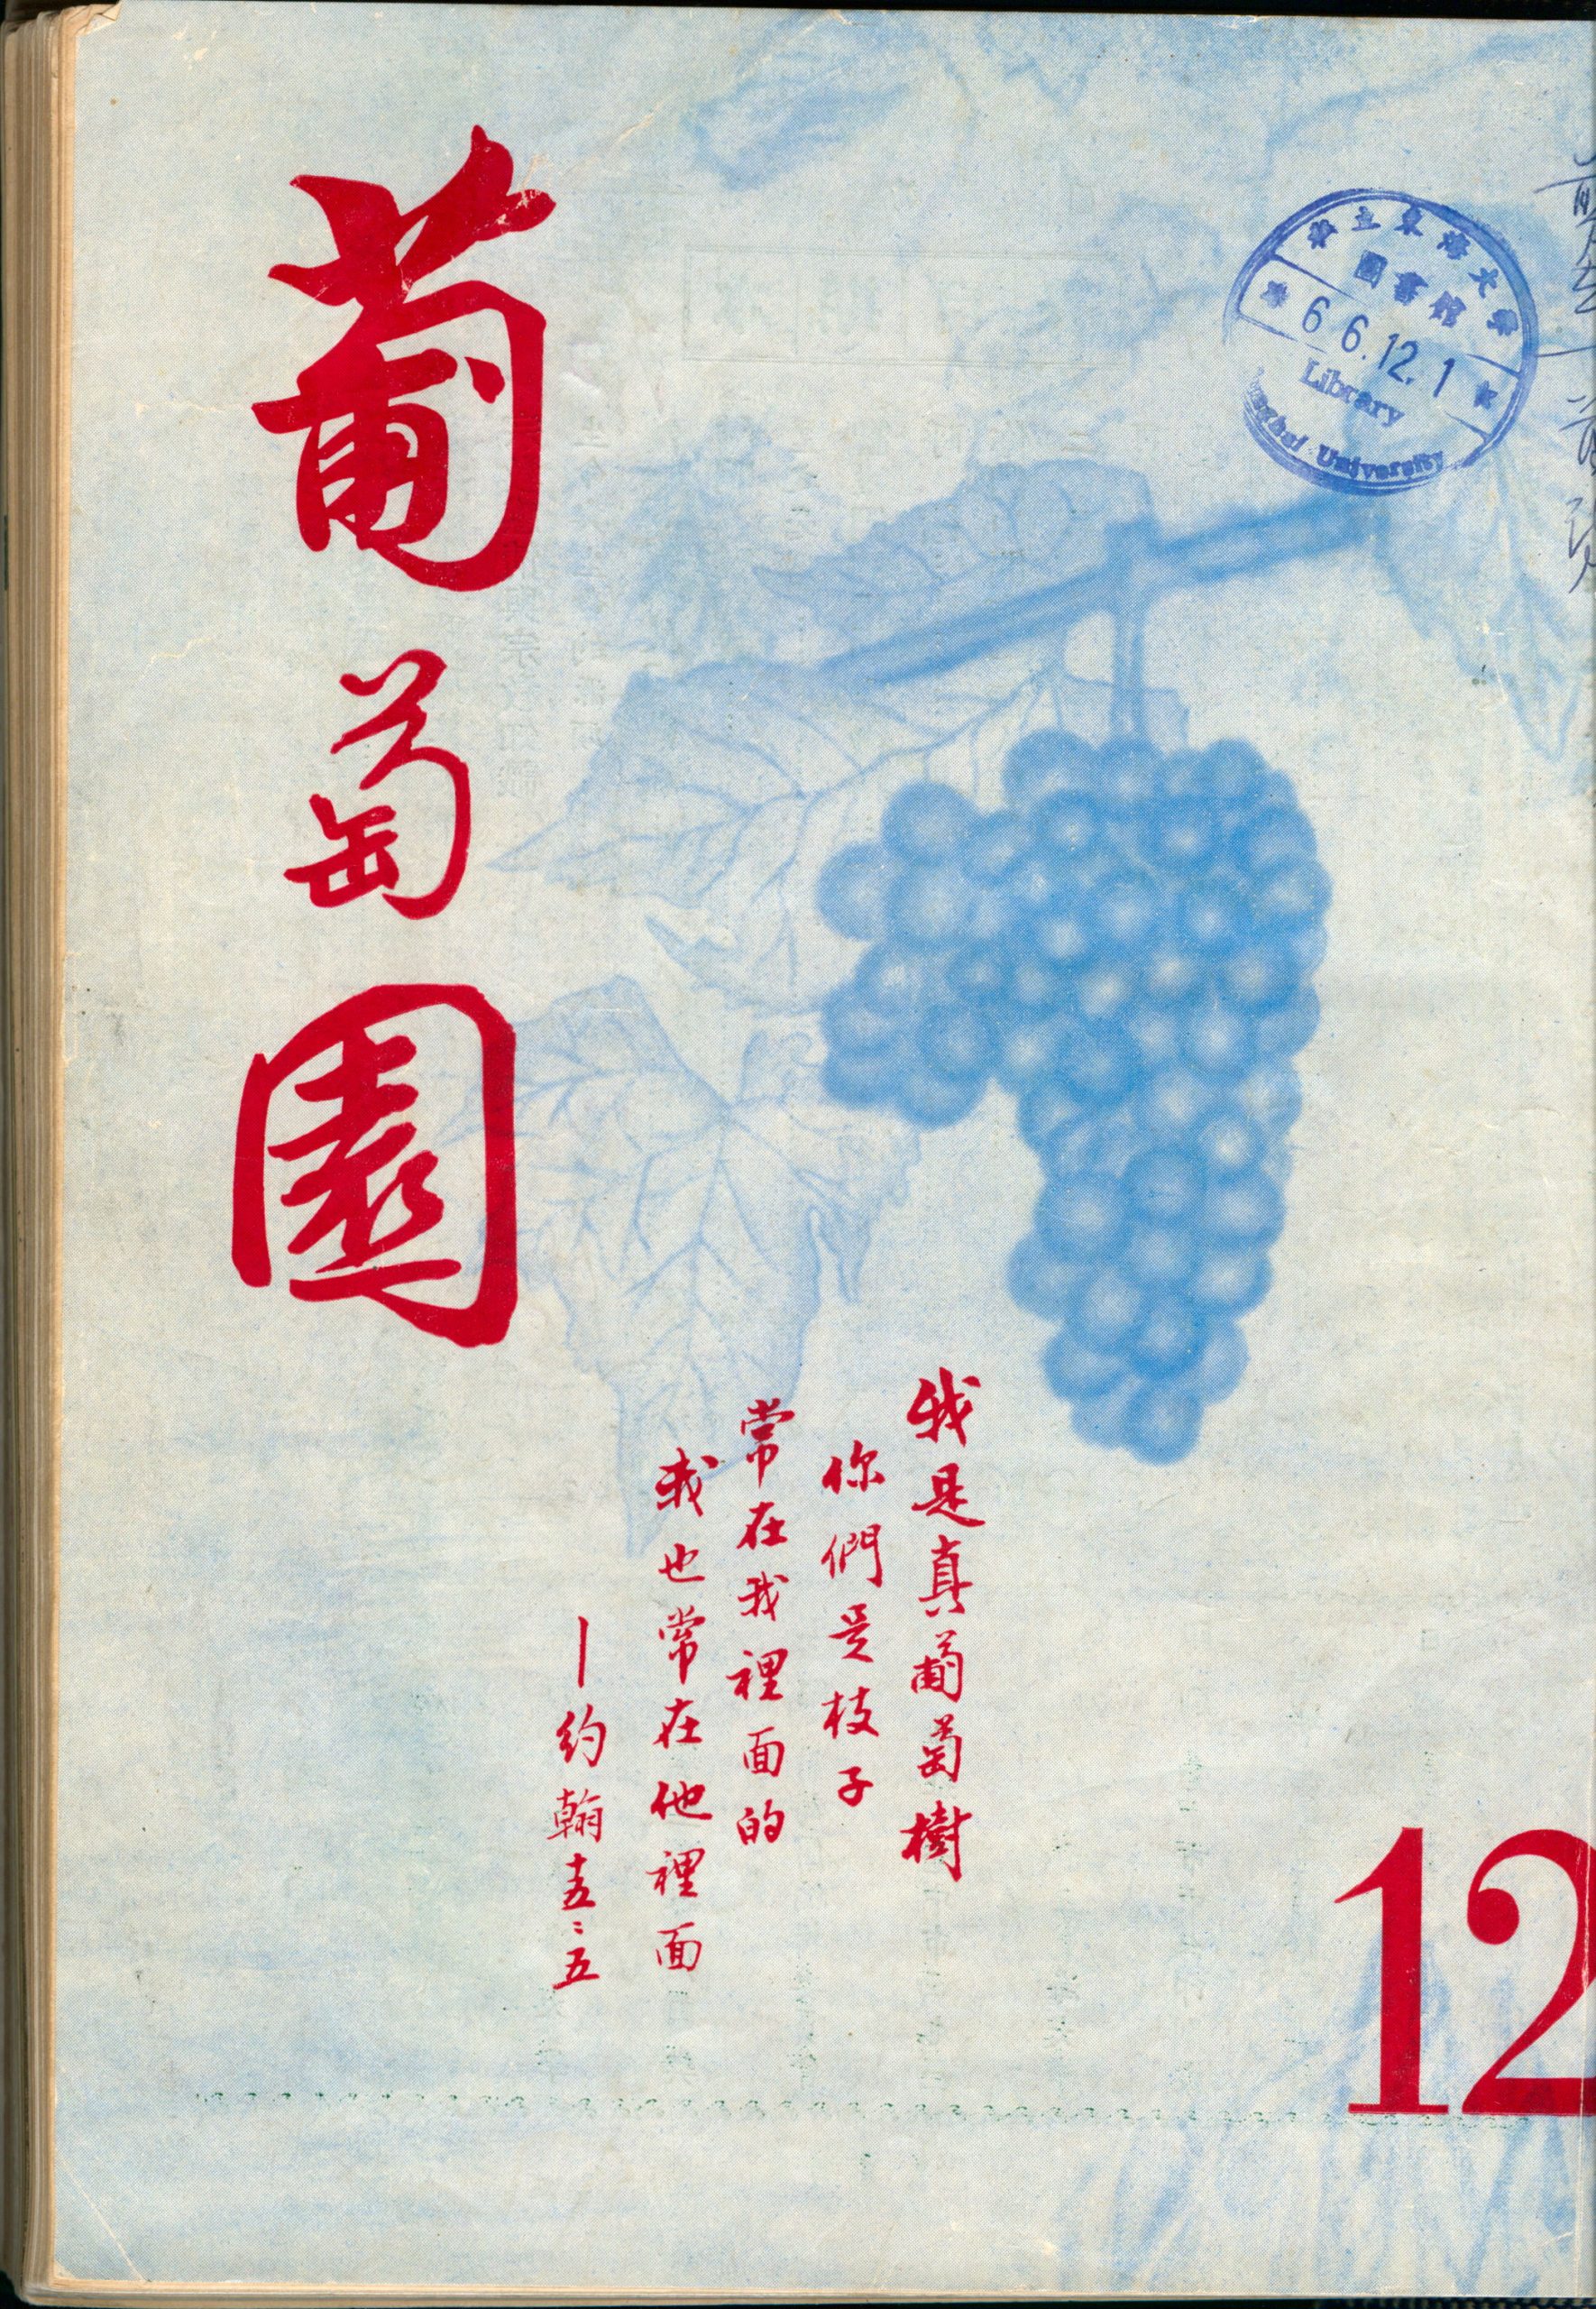 葡萄園
私立東海大學
圖書館
66.12.1
Library
University
我是真葡萄樹
你們是枝子
常在我裡面的
我也常在他裡面
—約翰十五:五
12